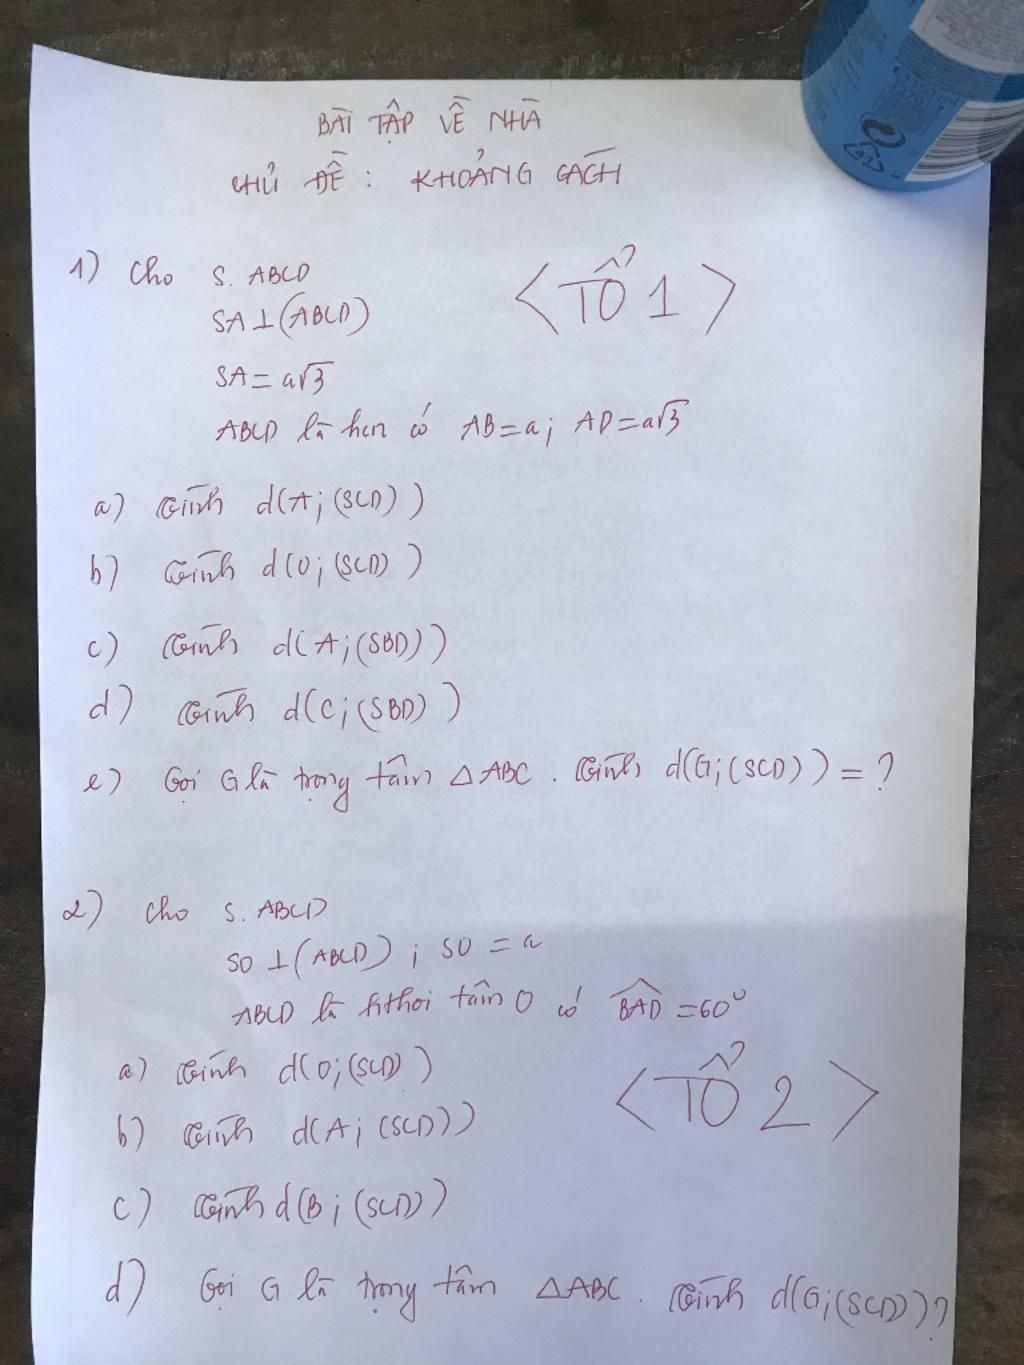 BÀI TẬP VỀ NHÀ
CHỦ ĐỀ: KHOẢNG CÁCH
1) Cho S.ABCD
<TỔ 1>
SA⊥(ABCD)
SA=a√3
ABCD là hcn có AB=a; AD=a√3
a) Tính d(A;(SCD))
b) Tính d(O;(SCD))
c) Tính d(A;(SBD))
d) Tính d(C;(SBD))
e) Gọi G là trọng tâm △ABC. Tính d(G;(SCD))=?
2) Cho S.ABCD
SO⊥(ABCD); SO=a
ABCD là hthoi tâm O có BAD=60°
a) Tính d(O;(SCD))
<TỔ 2>
b) Tính d(A;(SCD))
c) Tính d(B;(SCD))
d) Gọi G là trọng tâm △ABC. Tính d(G;(SCD))?